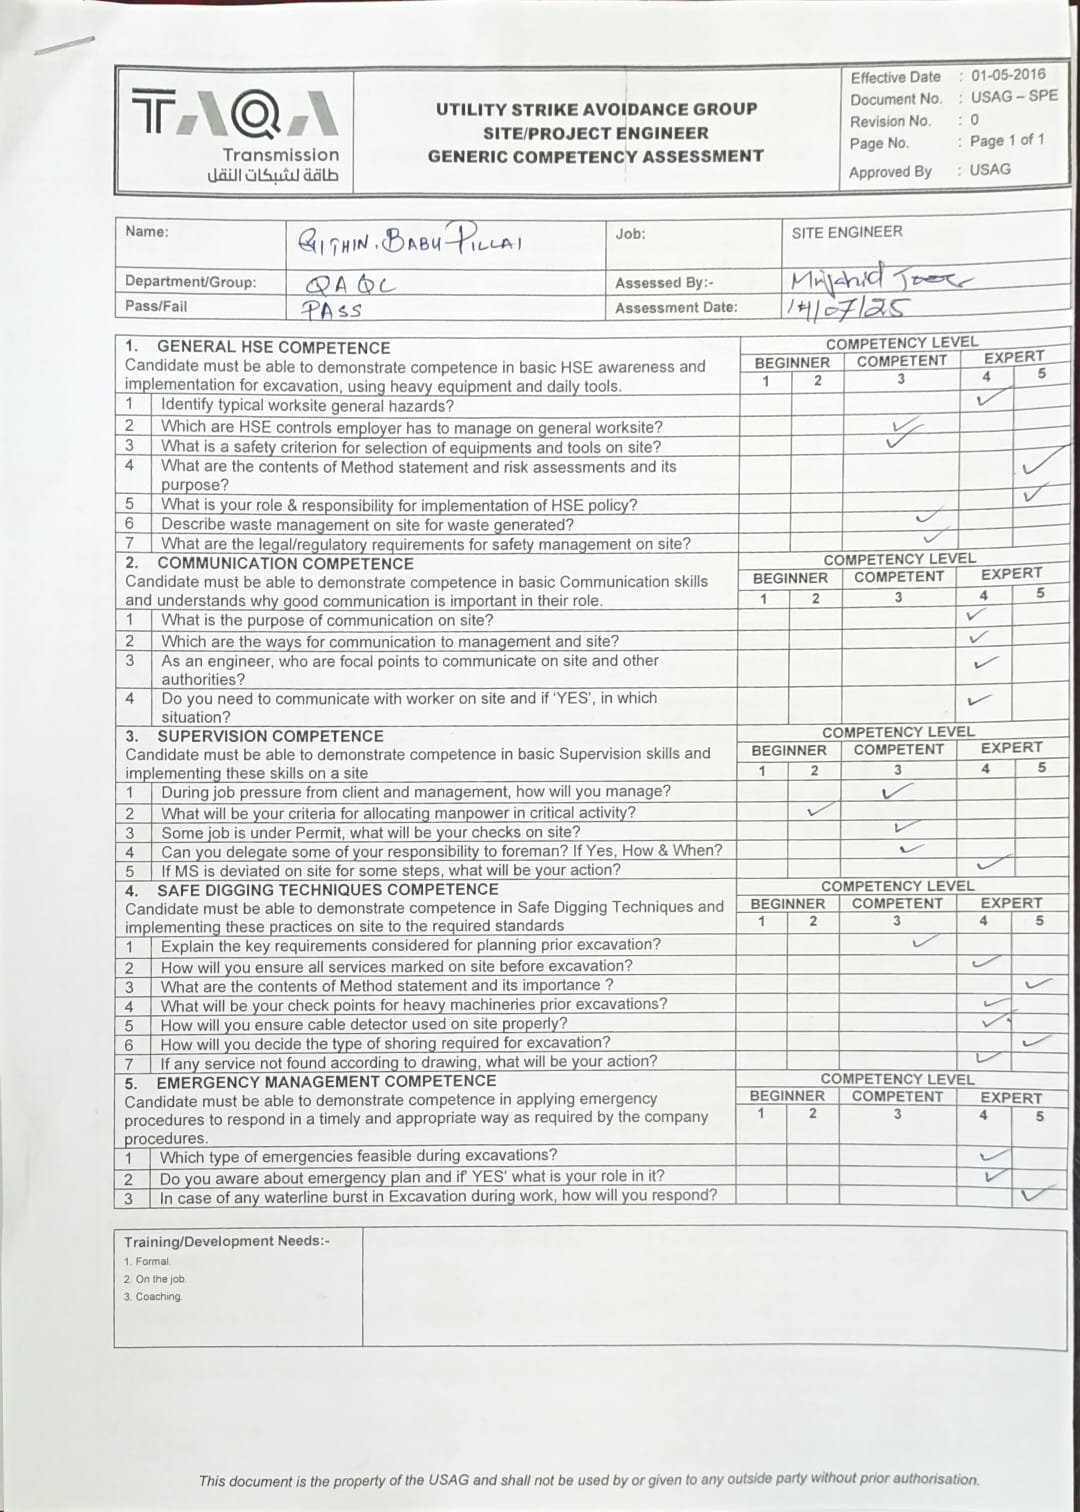 TAQA
Transmission
طاقة لشبكات النقل
UTILITY STRIKE AVOIDANCE GROUP
SITE/PROJECT ENGINEER
GENERIC COMPETENCY ASSESSMENT
Effective Date : 01-05-2016
Document No. : USAG – SPE
Revision No. : 0
Page No. : Page 1 of 1
Approved By : USAG
Name: GITHIN. BABU PILLAI Job: SITE ENGINEER
Department/Group: QA QC Assessed By:- Mujahid
Pass/Fail PASS Assessment Date: 14/07/25
1. GENERAL HSE COMPETENCE COMPETENCY LEVEL
Candidate must be able to demonstrate competence in basic HSE awareness and BEGINNER COMPETENT EXPERT
implementation for excavation, using heavy equipment and daily tools. 1 2 3 4 5
1 Identify typical worksite general hazards? ✓
2 Which are HSE controls employer has to manage on general worksite? ✓
3 What is a safety criterion for selection of equipments and tools on site? ✓
4 What are the contents of Method statement and risk assessments and its ✓
purpose?
5 What is your role & responsibility for implementation of HSE policy? ✓
6 Describe waste management on site for waste generated? ✓
7 What are the legal/regulatory requirements for safety management on site? ✓
2. COMMUNICATION COMPETENCE COMPETENCY LEVEL
Candidate must be able to demonstrate competence in basic Communication skills BEGINNER COMPETENT EXPERT
and understands why good communication is important in their role. 1 2 3 4 5
1 What is the purpose of communication on site? ✓
2 Which are the ways for communication to management and site? ✓
3 As an engineer, who are focal points to communicate on site and other ✓
authorities?
4 Do you need to communicate with worker on site and if ‘YES’, in which ✓
situation?
3. SUPERVISION COMPETENCE COMPETENCY LEVEL
Candidate must be able to demonstrate competence in basic Supervision skills and BEGINNER COMPETENT EXPERT
implementing these skills on a site 1 2 3 4 5
1 During job pressure from client and management, how will you manage? ✓
2 What will be your criteria for allocating manpower in critical activity? ✓
3 Some job is under Permit, what will be your checks on site? ✓
4 Can you delegate some of your responsibility to foreman? If Yes, How & When? ✓
5 If MS is deviated on site for some steps, what will be your action? ✓
4. SAFE DIGGING TECHNIQUES COMPETENCE COMPETENCY LEVEL
Candidate must be able to demonstrate competence in Safe Digging Techniques and BEGINNER COMPETENT EXPERT
implementing these practices on site to the required standards 1 2 3 4 5
1 Explain the key requirements considered for planning prior excavation? ✓
2 How will you ensure all services marked on site before excavation? ✓
3 What are the contents of Method statement and its importance ? ✓
4 What will be your check points for heavy machineries prior excavations? ✓
5 How will you ensure cable detector used on site properly? ✓
6 How will you decide the type of shoring required for excavation? ✓
7 If any service not found according to drawing, what will be your action? ✓
5. EMERGENCY MANAGEMENT COMPETENCE COMPETENCY LEVEL
Candidate must be able to demonstrate competence in applying emergency BEGINNER COMPETENT EXPERT
procedures to respond in a timely and appropriate way as required by the company 1 2 3 4 5
procedures.
1 Which type of emergencies feasible during excavations? ✓
2 Do you aware about emergency plan and if YES' what is your role in it? ✓
3 In case of any waterline burst in Excavation during work, how will you respond? ✓
Training/Development Needs:-
1. Formal.
2. On the job.
3. Coaching.
This document is the property of the USAG and shall not be used by or given to any outside party without prior authorisation.